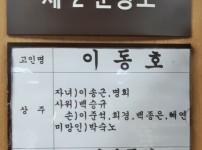 제 2 분향소
고인명 이동호
상 주
자녀)이송근,명희
사위)백승규
손)이준석,희경,백종은,혜연
미망인)박숙노